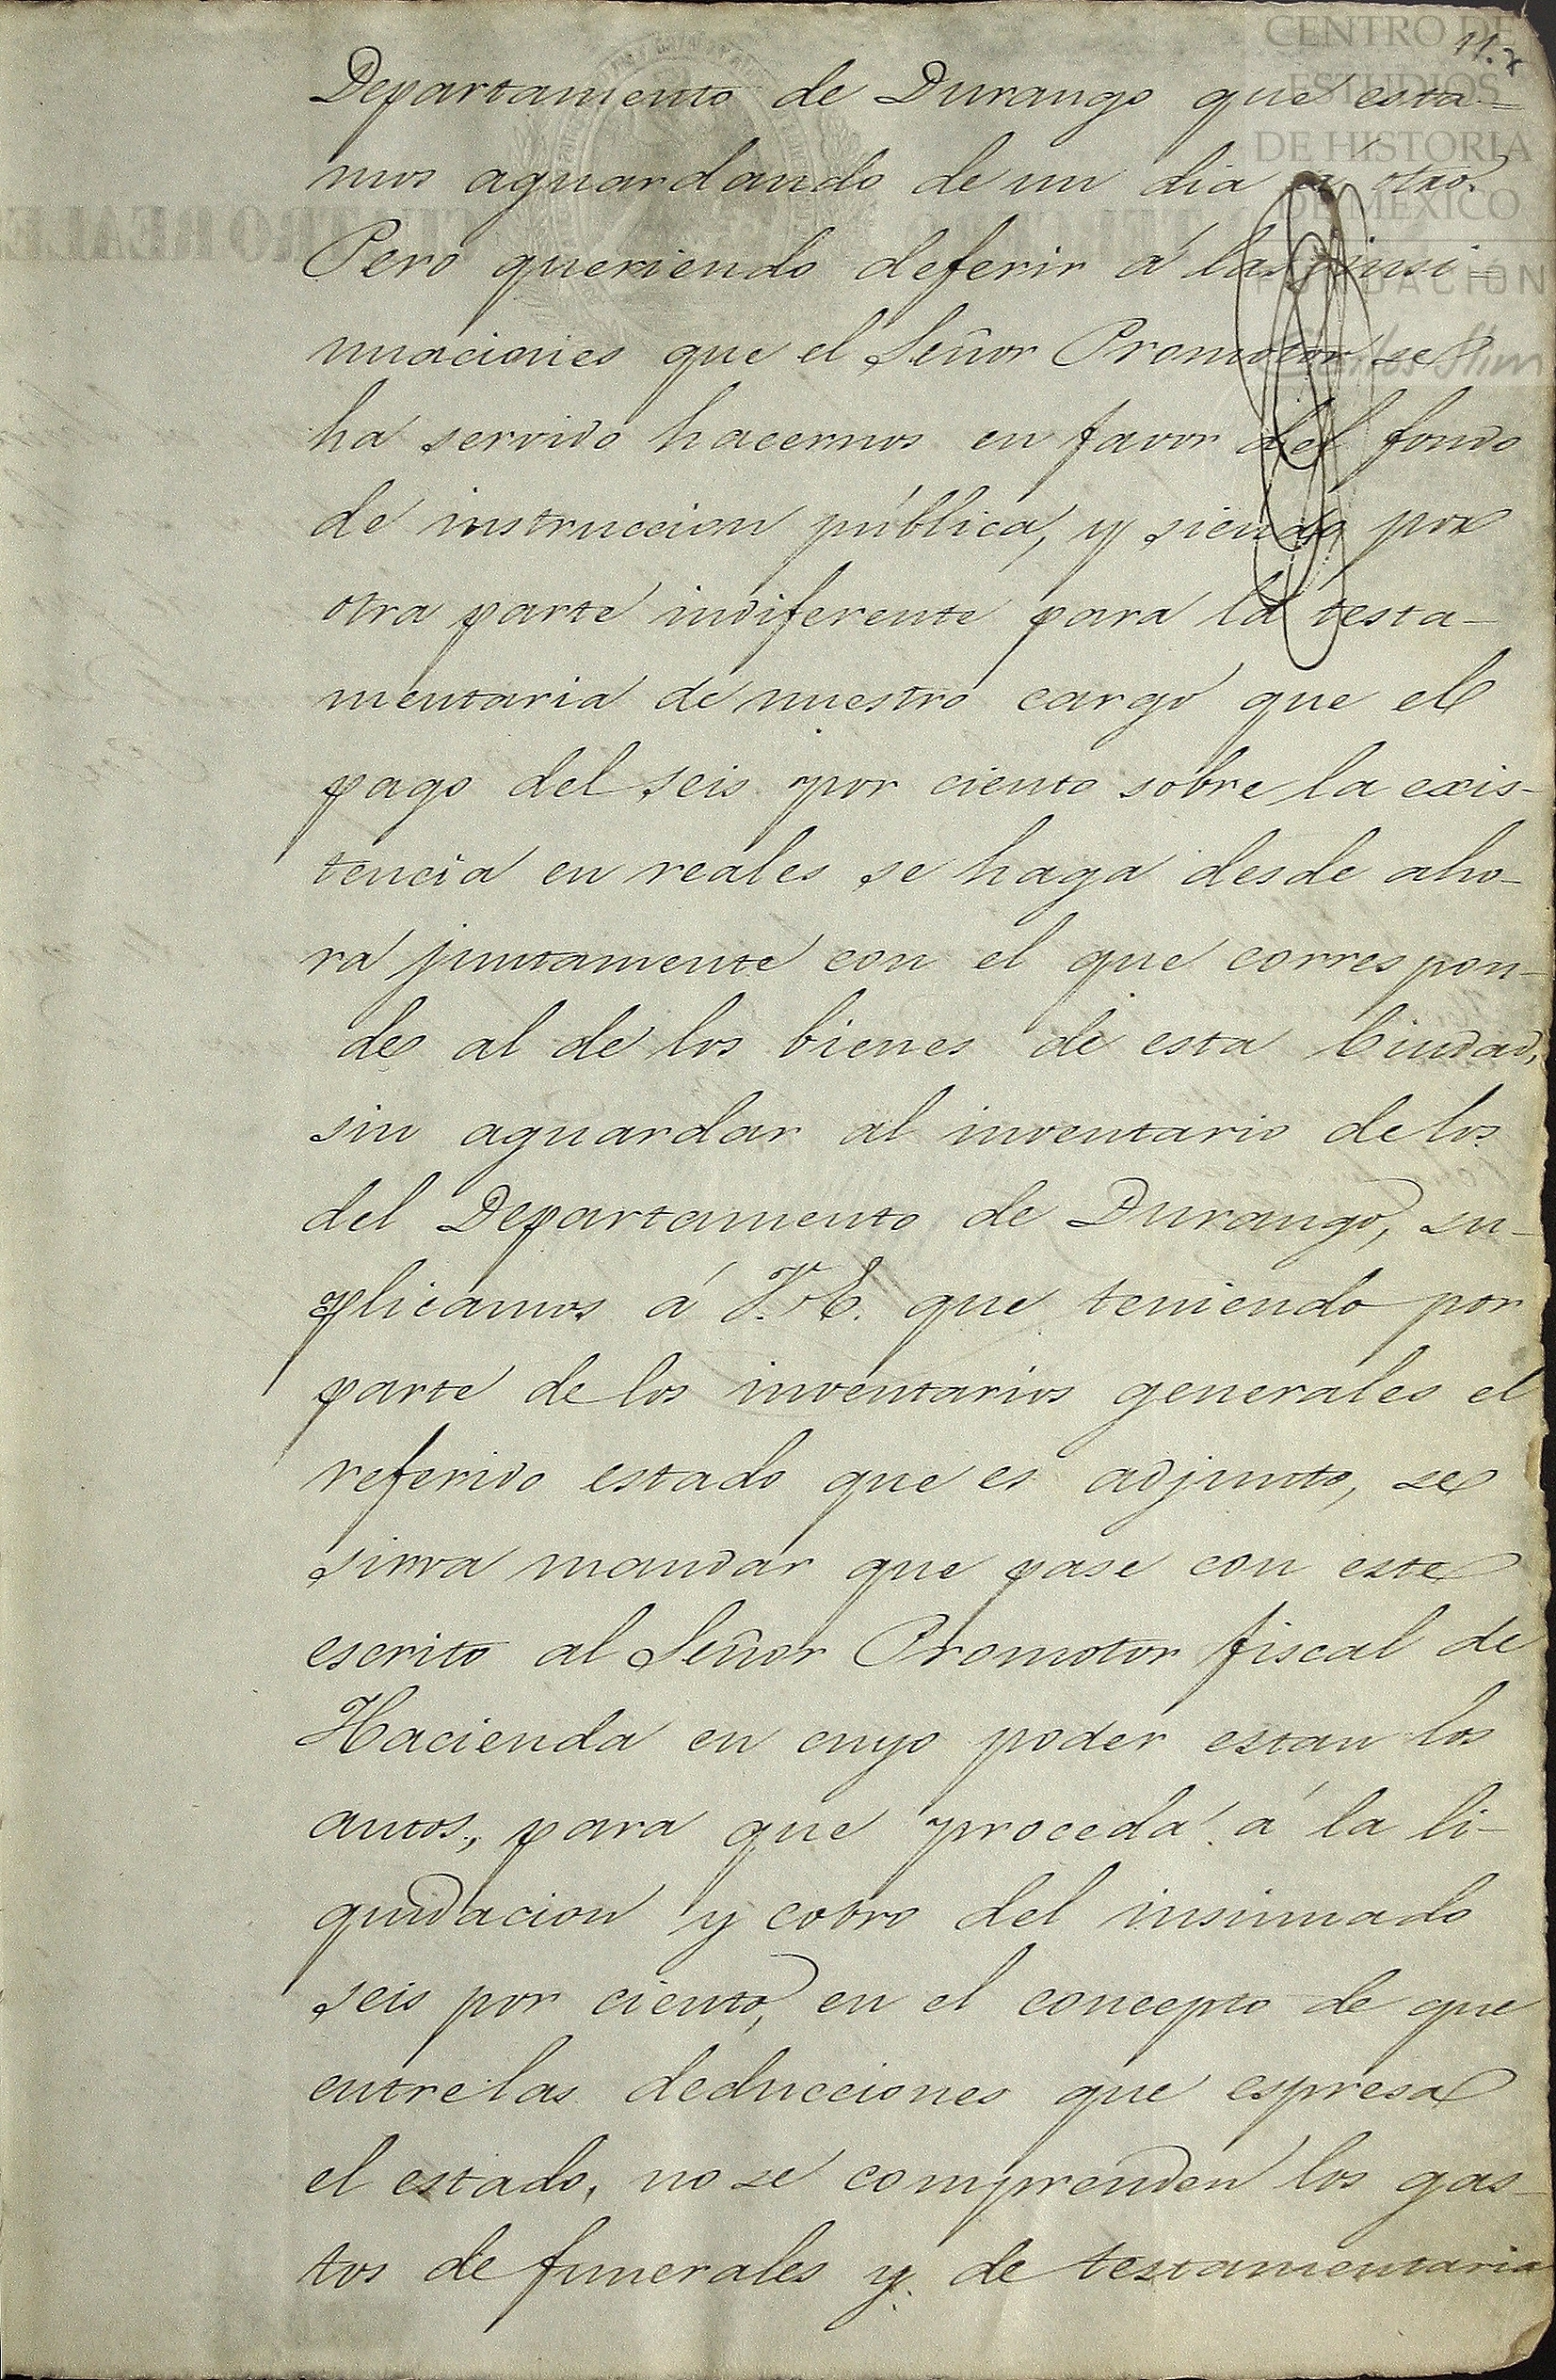 11.
Departamento de Durango que esta=
mos aguardando de un dia á otro.
Pero queriendo deferir á las insi=
nuaciones que el Señor Promotor se
ha servido hacernos en favor del fondo
de instruccion pública, y siendo por
otra parte indiferente para la testa-
mentaria de nuestro cargo que el
pago del seis por ciento sobre la exis-
tencia en reales se haga desde aho-
ra juntamente con el que correspon-
de al de los bienes de esta Ciudad,
sin aguardar al inventario de los
del Departamento de Durango, su-
plicamos á V.E. que teniendo por
parte de los inventarios generales el
referido estado que es adjunto, se
sirva mandar que pase con este
escrito al Señor Promotor fiscal de
Hacienda en cuyo poder estan los
autos, para que proceda á la li-
quidacion y cobro del insinuado
seis por ciento, en el concepto de que
entre las deducciones que espresa
el estado, no se comprenden los gas-
tos de funerales y de testamentaria
CENTRO DE
ESTUDIOS
DE HISTORIA
DE MEXICO
FUNDACIÓN
Carlos Slim